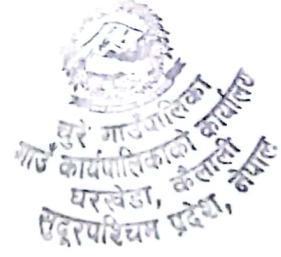 चुरे गाउँपालिका
गाउँ कार्यपालिकाको कार्यालय
घरखेडा, कैलाली
सुदूरपश्चिम प्रदेश, नेपाल